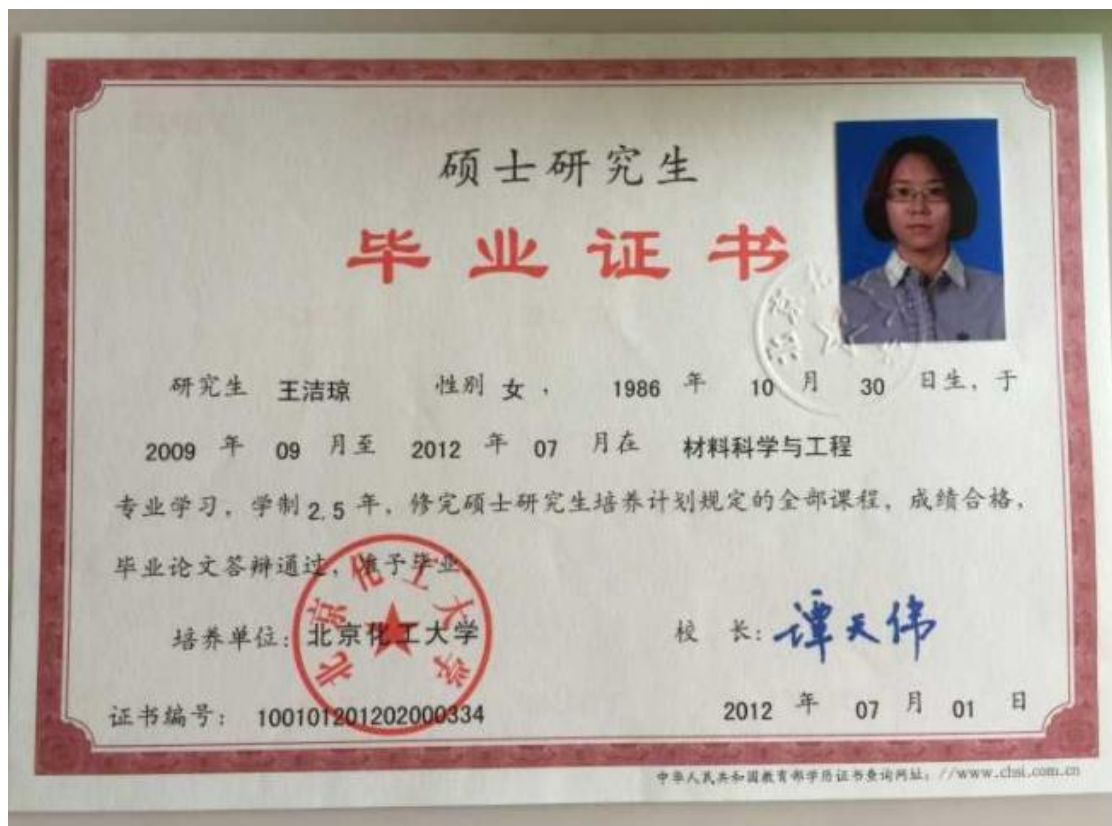 硕士研究生
毕业证书
研究生 王洁琼 性别 女, 1986 年 10 月 30 日生, 于
2009 年 09 月至 2012 年 07 月在 材料科学与工程
专业学习, 学制 2.5 年, 修完硕士研究生培养计划规定的全部课程, 成绩合格,
毕业论文答辩通过, 准予毕业。
北京化工大学
培养单位: 北京化工大学 校 长: 谭天伟
证书编号: 100101201202000334 2012 年 07 月 01 日
中华人民共和国教育部学历证书查询网址: //www.chsi.com.cn